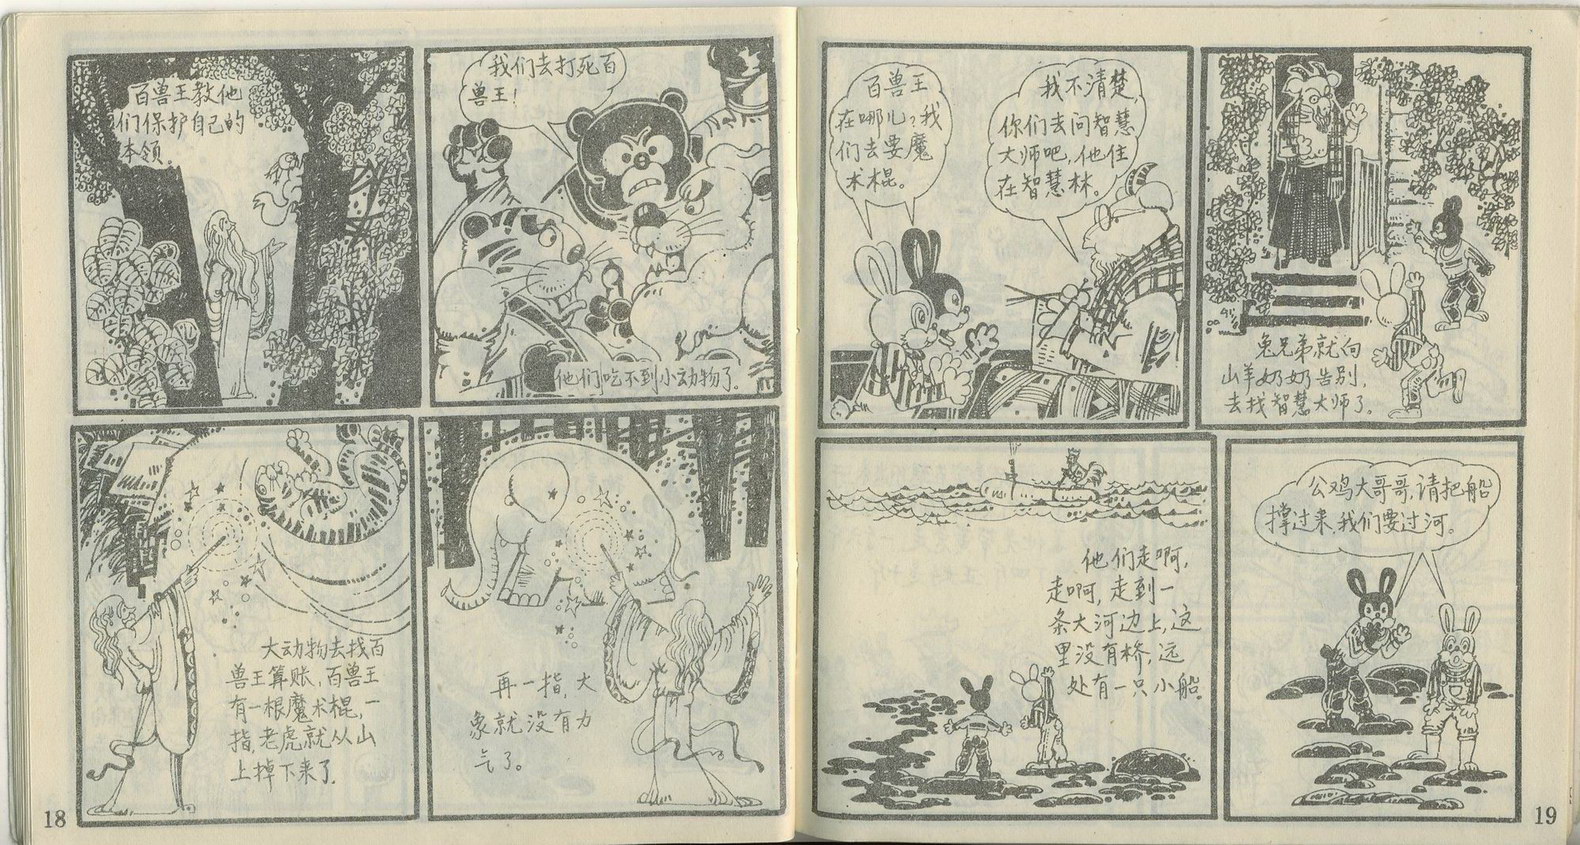 百兽王教他
们保护自己的
本领。
我们去打死百
兽王！
他们吃不到小动物了。
大动物去找百
兽王算账，百兽王
有一根魔术棍，一
指，老虎就从山
上掉下来了。
再一指，大
象就没有力
气了。
18
百兽王
在哪儿？我
们去要魔
术棍。
我不清楚，
你们去问智慧
大师吧，他住
在智慧林。
兔兄弟就向
山羊奶奶告别，
去找智慧大师了。
他们走啊，
走啊，走到一
条大河边上，这
里没有桥，远
处有一只小船。
公鸡大哥哥，请把船
撑过来，我们要过河。
19